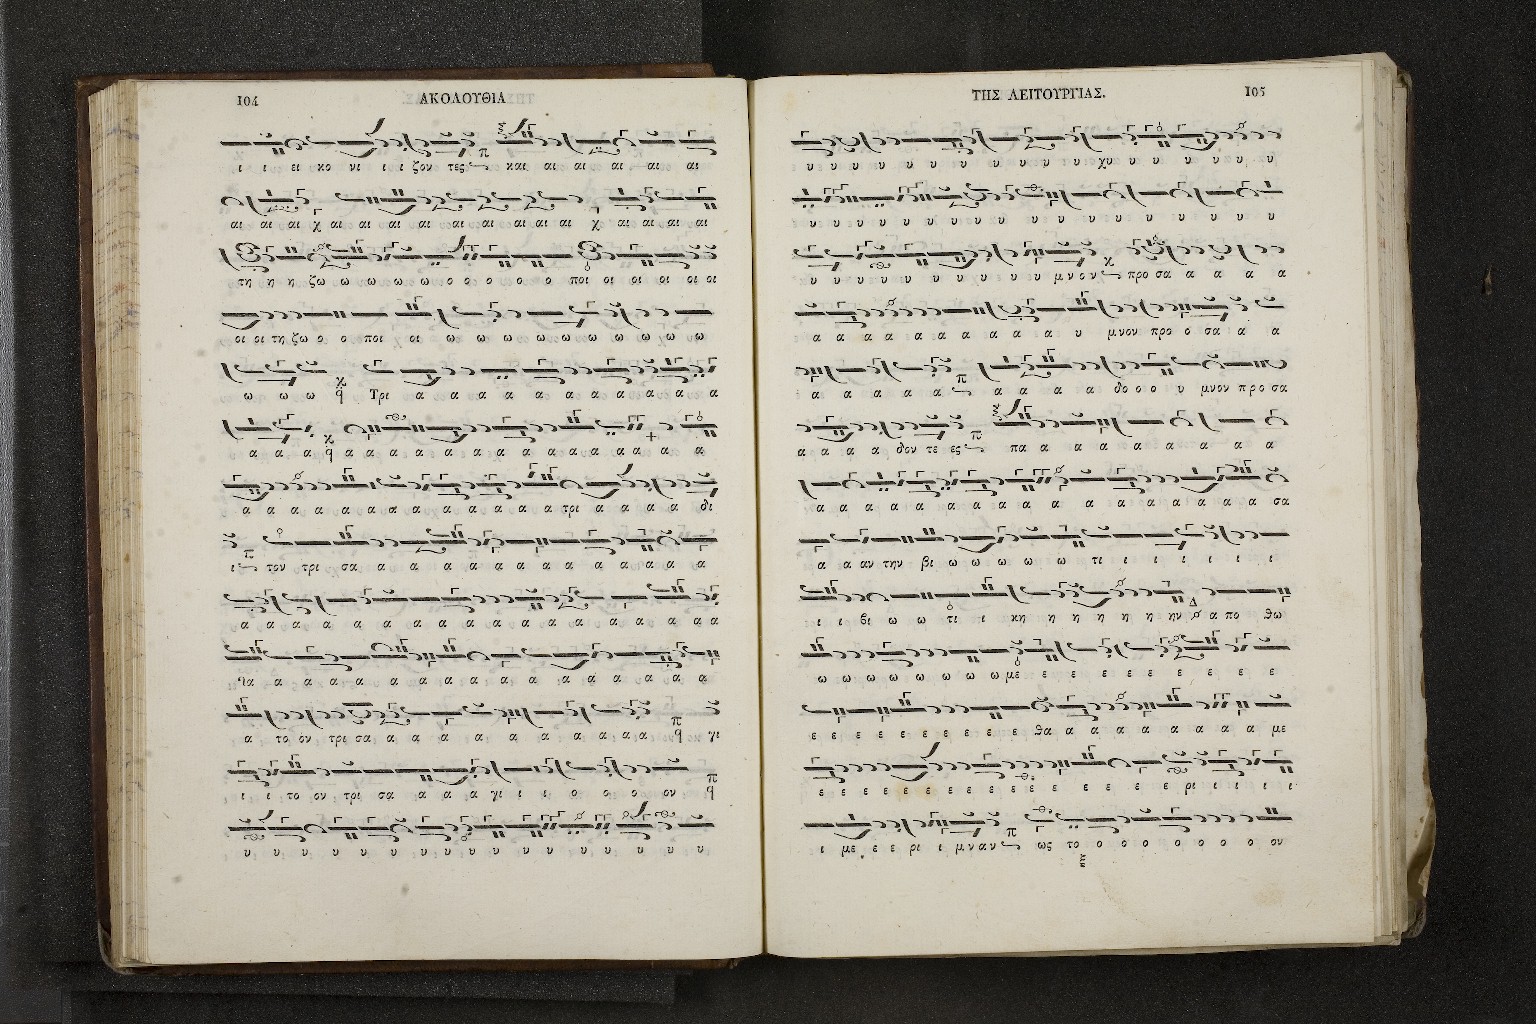 104 ΑΚΟΛΟΥΘΙΑ
ι ι ει κο νι ι ι ζον τες και αι αι αι αι αι αι
αι αι αι χ αι αι αι αι αι αι αι αι αι χ αι αι αι αι
τη η η ζω ω ω ω ω ο ο ο ο ο ποι οι οι οι οι οι
οι οι τη ζω ο ο ποι οι ω ω ω ω ω ω ω ω ω ω
ω ω ω Τρι α α α α α α α α α α α α
α α α α α α α α α α α α α α α α α α
α α α α α α α α α α α α α τρι α α α α δι
ι τον τρι σα α α α α α α α α α α α α
α α α α α α α α α α α α α α α α α
για α α α α α α α α α α α α α α α
α το ον τρι σα α α α α α α α α α α γι
ι ι το ον τρι σα α α α γι ι ι ο ο ο ον
υ υ υ υ υ υ υ υ υ υ υ υ υ υ υ υ υ υ
ΤΗΣ ΛΕΙΤΟΥΡΓΙΑΣ. 105
υ υ υ υ υ υ υ υ υ υ υ υ χυ υ υ υ υ υ υ
υ υ υ υ υ υ υ υ υ υ υ υ υ υ υ υ υ
υ υ υ υ υ υ υ υ υ υ μνον προ σα α α α α
α α α α α α α α α α υ μνον προ ο σα α α
α α α α α α α α α δο ο ο υ μνον προ σα
α α α α δον τε ες πα α α α α α α α α α
α α α α α α α α α α α α α α α α α α σα
α α αν την βι ω ω ω ω ω τι ι ι ι ι ι ι
ι ι βι ω ω τι ι κη η η η η η ην α πο θω
ω ω ω ω ω ω ω ω με ε ε ε ε ε ε ε ε ε
ε ε ε ε ε ε ε ε ε θα α α α α α α α α με
ε ε ε ε ε ε ε ε ε ε ε ε ε ε ρι ι ι ι ι
ι με ε ε ρι ι μναν ως το ο ο ο ο ο ο ο ο ον